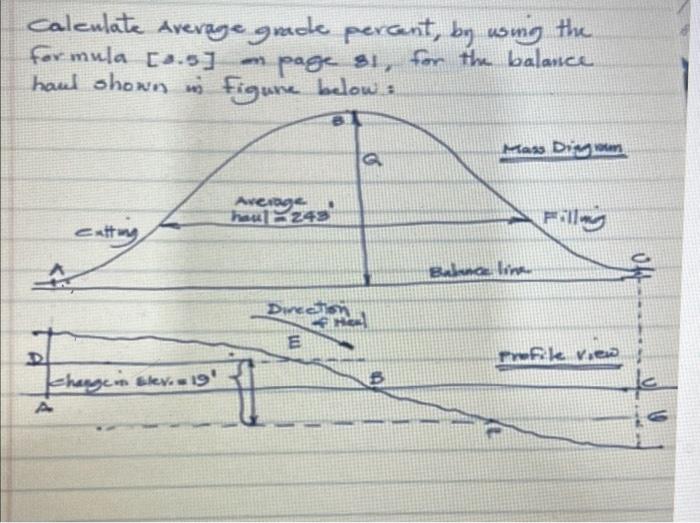 Calculate Average grade percent, by using the
formula [3.5] on page 81, for the balance
haul shown in figure below:
B
Mass Diagram
Q
Average
haul = 243'
Cutting
Filling
A
C
Balance line
Direction
of Haul
E
Profile view
D
Change in Elev. = 19'
B
C
A
F
G